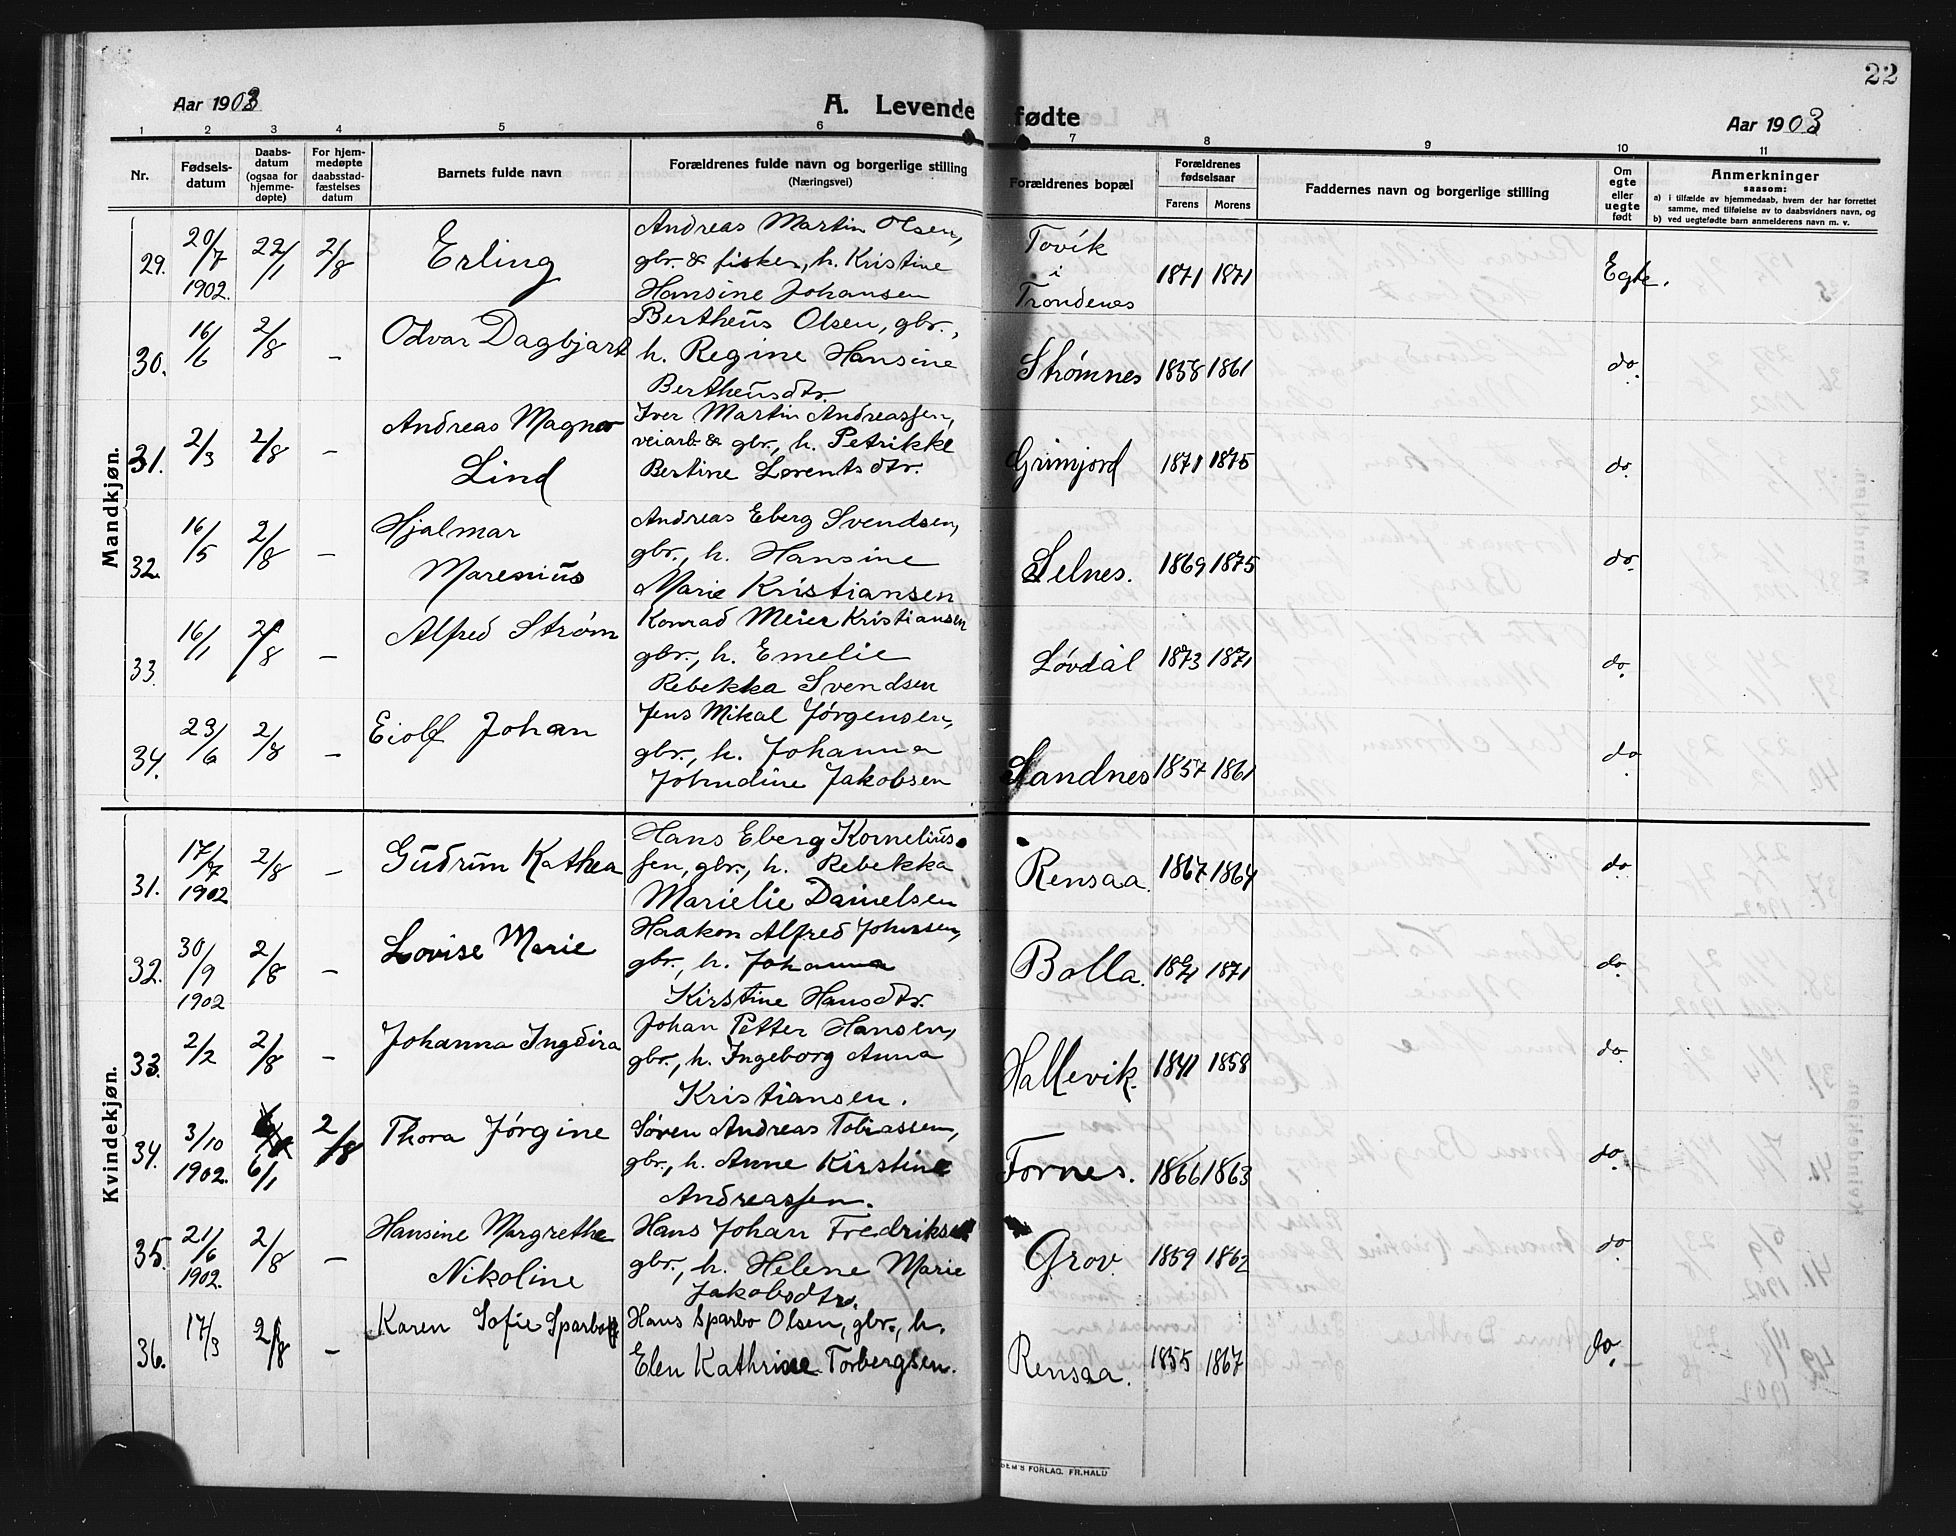 22
Aar 1903
A. Levende fødte
Aar 1903
1 2 3 4 5 6 7 8 9 10 11
Nr.
Fødsels-
datum
Daabs-
datum
(ogsaa for
hjemme-
døpte)
For hjem-
medøpte
daabsstad-
fæstelses
datum
Barnets fulde navn
Forældrenes fulde navn og borgerlige stilling
(Næringsvei)
Forældrenes bopæl
Forældrenes
fødselsaar
Farens Morens
Faddernes navn og borgerlige stilling
Om
egte
eller
uegte
født
Anmerkninger
saasom:
a) i tilfælde av hjemmedaab, hvem der har forrettet
samme, med tilføielse av to daabsvidners navn, og
b) ved uegtefødte barn anmelderens navn m. v.
Mandkjøn.
29. 20/7 1902. 22/1 2/8 Erling
Andreas Martin Olsen,
gbr. & fisker, h. Kristine
Hansine Johansen
Tovik
i
Trondenes
1871 1871 Egte.
30. 16/6 2/8 – Odvar Dagbjart
Bertheus Olsen, gbr.,
h. Regine Hansine
Bertheusdtr.
Strømnes 1858 1861 do.
31. 2/3 2/8 – Andreas Magnor
Lind
Iver Martin Andreassen,
veiarb. & gbr., h. Petrikke
Bertine Lorentsdtr.
Grimjord 1871 1875 do.
32. 16/5 2/8 – Hjalmar
Marenius
Andreas Eberg Svendsen,
gbr., h. Hansine
Marie Kristiansen
Selnes. 1869 1875 do.
33. 16/1 2/8 – Alfred Strøm
Konrad Meier Kristiansen
gbr., h. Emelie
Rebekka Svendsen
Løvdal 1873 1871 do.
34. 23/6 2/8 – Eiolf Johan
Jens Mikal Jørgensen,
gbr., h. Johanna
Johndine Jakobsen
Sandnes 1857 1861 do
Kvindekjøn.
31. 17/7 1902 2/8 – Gudrun Kathea
Hans Eberg Kornelius-
sen, gbr., h. Rebekka
Marielie Danielsen
Rensaa. 1867 1864 do.
32. 30/9 1902 2/8 – Lovise Marie
Haakon Alfred Johnsen,
gbr., h. Johanna
Kirstine Hansdtr.
Bolla. 1871 1871 do.
33. 2/2 2/8 – Johanna Ingdira
Johan Petter Hansen,
gbr., h. Ingeborg Anna
Kristiansen.
Hallevik. 1841 1858 do.
34. 3/10 1902. 6/1 2/8 Thora Jørgine
Søren Andreas Tobiassen,
gbr., h. Anne Kirstine
Andreassen.
Fornes. 1866 1863 do.
35. 21/6 1902. 2/8 – Hansine Margrethe
Nikoline
Hans Johan Fredriksen
gbr., h. Helene Marie
Jakobsdtr.
Grov 1859 1862 do
36. 17/3 2/8 – Karen Sofie Sparboe
Hans Sparbo Olsen, gbr., h.
Elen Kathrine Torbergsen.
Rensaa. 1855 1867 do.
FORLAG, FR.HALD